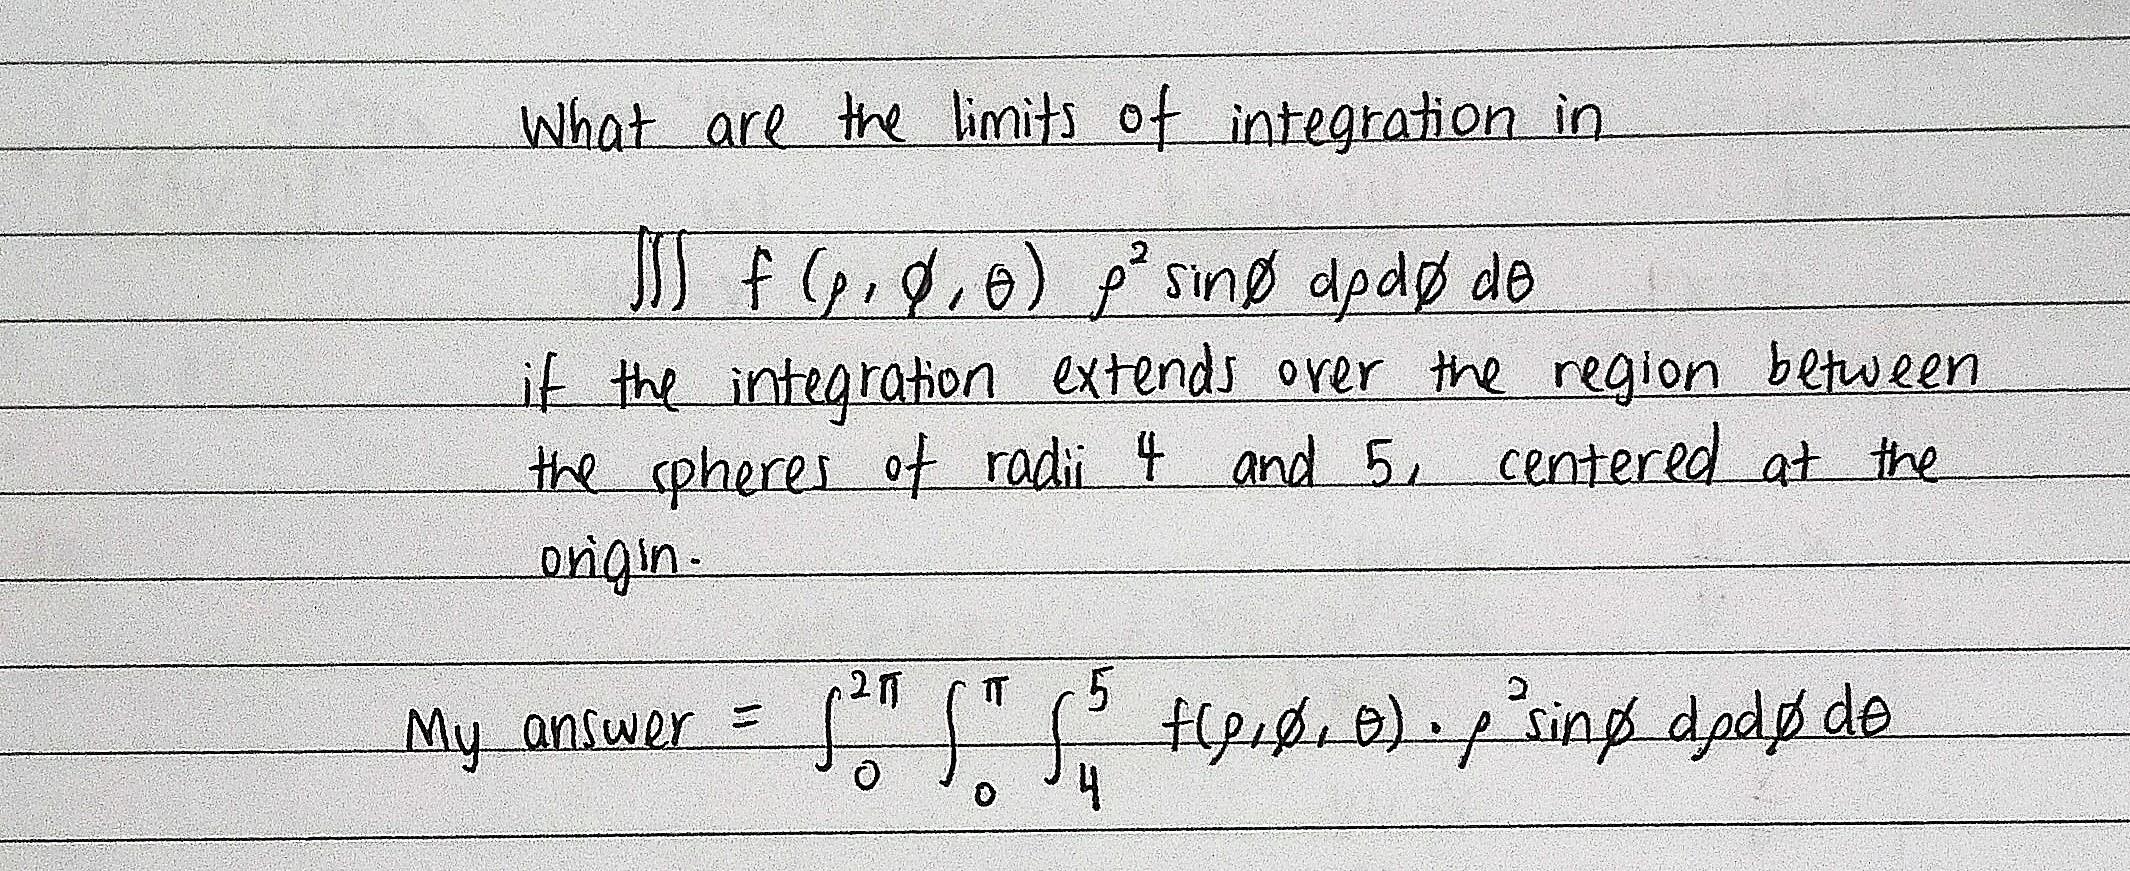 What are the limits of integration in
∭ f (ρ, ø, θ) ρ² sinø dρdø dθ
if the integration extends over the region between
the spheres of radii 4 and 5, centered at the
origin.
My answer = ∫₀^2π ∫₀^π ∫₄^5 f(ρ,ø, θ) · ρ² sinø dρdø dθ